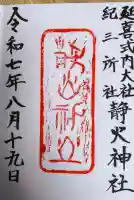 延喜式内大社
紀三所社
静火神社
令和七年八月十九日